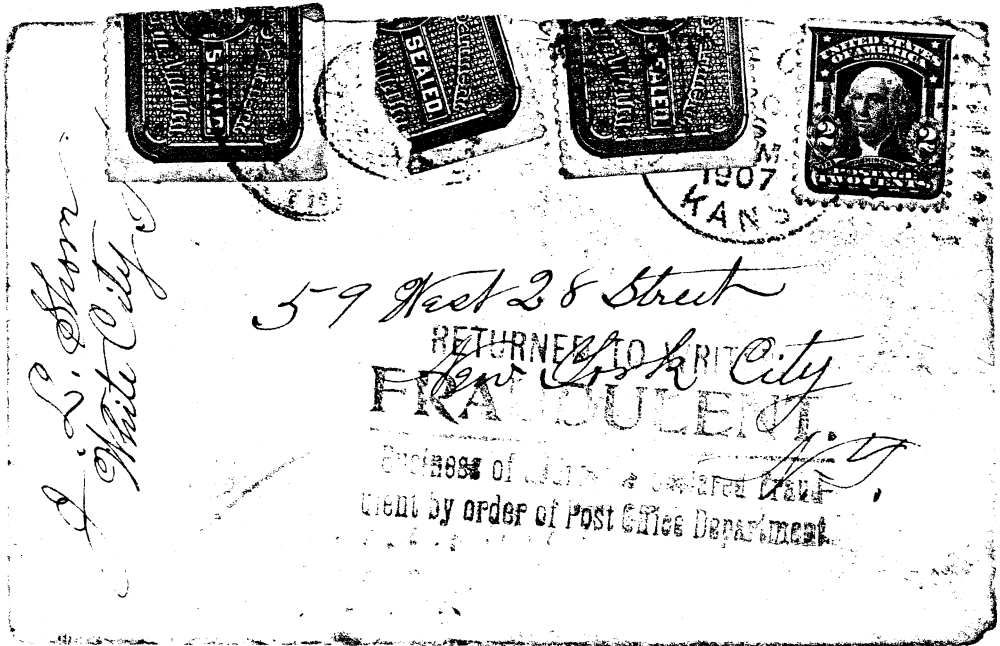 SEALED
SEALED
SEALED
UNITED STATES
OF AMERICA
2 2
TWO CENTS
1907
KANS
White City
59 West 28 Street
RETURNED TO WRIT
New York City
FRAUDULENT.
N.Y.
Business of declared fraud-
ulent by order of Post Office Department.